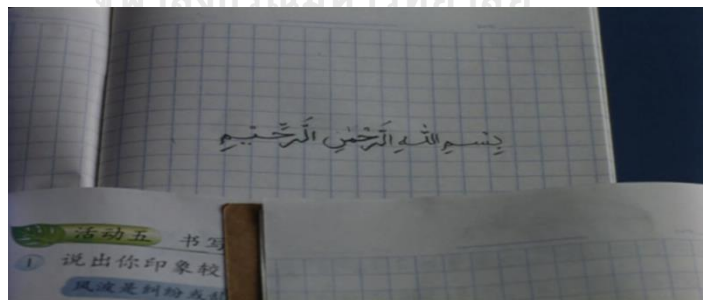 بِسْمِ اللَّهِ الرَّحْمَنِ الرَّحِيمِ
活动五 书写
1 说出你印象较
风波是纠纷或